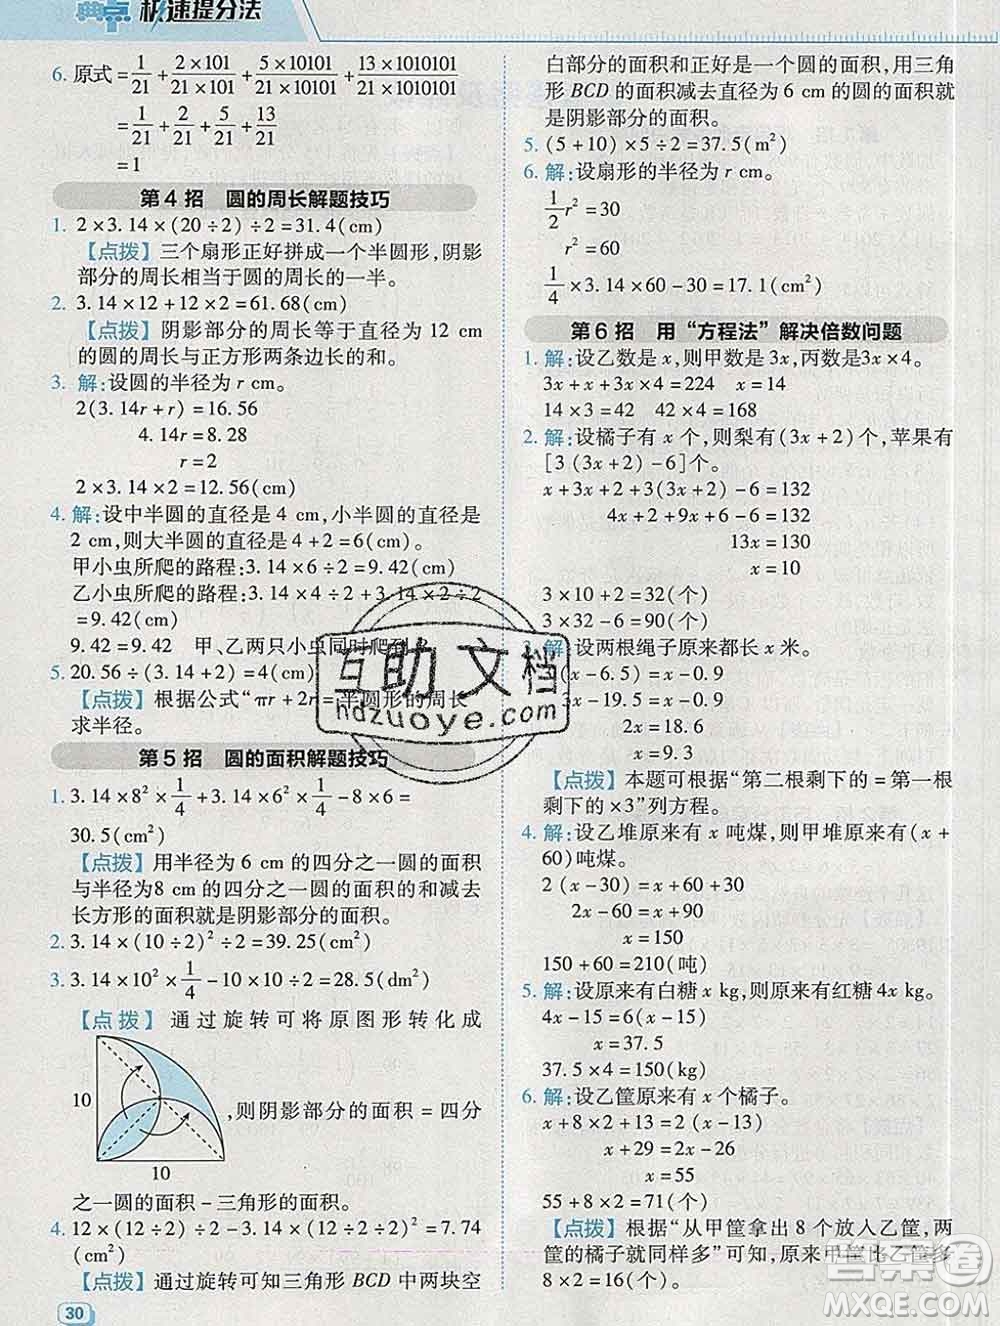 典点 极速提分法
6. 原式=1/21+2×101/21×101+5×10101/21×10101+13×1010101/21×1010101
=1/21+2/21+5/21+13/21
=1
第4招 圆的周长解题技巧
1. 2×3.14×(20÷2)÷2=31.4(cm)
【点拨】三个扇形正好拼成一个半圆形,阴影
部分的周长相当于圆的周长的一半。
2. 3.14×12+12×2=61.68(cm)
【点拨】阴影部分的周长等于直径为12 cm
的圆的周长与正方形两条边长的和。
3. 解:设圆的半径为r cm。
2(3.14r+r)=16.56
4.14r=8.28
r=2
2×3.14×2=12.56(cm)
4. 解:设中半圆的直径是4 cm,小半圆的直径是
2 cm,则大半圆的直径是4+2=6(cm)。
甲小虫所爬的路程:3.14×6÷2=9.42(cm)
乙小虫所爬的路程:3.14×4÷2+3.14×2÷2
=9.42(cm)
9.42=9.42 甲、乙两只小虫同时爬到B。
5. 20.56÷(3.14+2)=4(cm)
【点拨】根据公式“πr+2r=半圆形的周长”
求半径。
第5招 圆的面积解题技巧
1. 3.14×8²×1/4+3.14×6²×1/4-8×6=
30.5(cm²)
【点拨】用半径为6 cm的四分之一圆的面积
与半径为8 cm的四分之一圆的面积的和减去
长方形的面积就是阴影部分的面积。
2. 3.14×(10÷2)²÷2=39.25(cm²)
3. 3.14×10²×1/4-10×10÷2=28.5(dm²)
【点拨】通过旋转可将原图形转化成
10
10
,则阴影部分的面积=四分
之一圆的面积-三角形的面积。
4. 12×(12÷2)÷2-3.14×(12÷2÷2)²=7.74
(cm²)
【点拨】通过旋转可知三角形BCD中两块空
白部分的面积和正好是一个圆的面积,用三角
形BCD的面积减去直径为6 cm的圆的面积就
是阴影部分的面积。
5. (5+10)×5÷2=37.5(m²)
6. 解:设扇形的半径为r cm。
1/2r²=30
r²=60
1/4×3.14×60-30=17.1(cm²)
第6招 用“方程法”解决倍数问题
1. 解:设乙数是x,则甲数是3x,丙数是3x×4。
3x+x+3x×4=224 x=14
14×3=42 42×4=168
2. 解:设橘子有x个,则梨有(3x+2)个,苹果有
[3(3x+2)-6]个。
x+3x+2+3(3x+2)-6=132
4x+2+9x+6-6=132
13x=130
x=10
3×10+2=32(个)
3×32-6=90(个)
3. 解:设两根绳子原来都长x米。
3(x-6.5)=x-0.9
3x-19.5=x-0.9
2x=18.6
x=9.3
【点拨】本题可根据“第二根剩下的=第一根
剩下的×3”列方程。
4. 解:设乙堆原来有x吨煤,则甲堆原来有(x+
60)吨煤。
2(x-30)=x+60-30
2x-60=x+90
x=150
150+60=210(吨)
5. 解:设原来有白糖x kg,则原来有红糖4x kg。
4x-15=6(x-15)
x=37.5
37.5×4=150(kg)
6. 解:设乙筐原来有x个橘子。
x+8×2+13=2(x-13)
x+29=2x-26
x=55
55+8×2=71(个)
【点拨】根据“从甲筐拿出8个放入乙筐,两
筐的橘子就同样多”可知,原来甲筐比乙筐多
8×2=16(个)。
30
互助文档
hdzuoye.com
答案圈
MXQE.COM